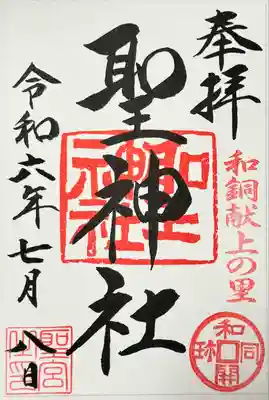 奉拝
和銅献上の里
聖神社
聖神社
令和六年七月八日
和同開珎